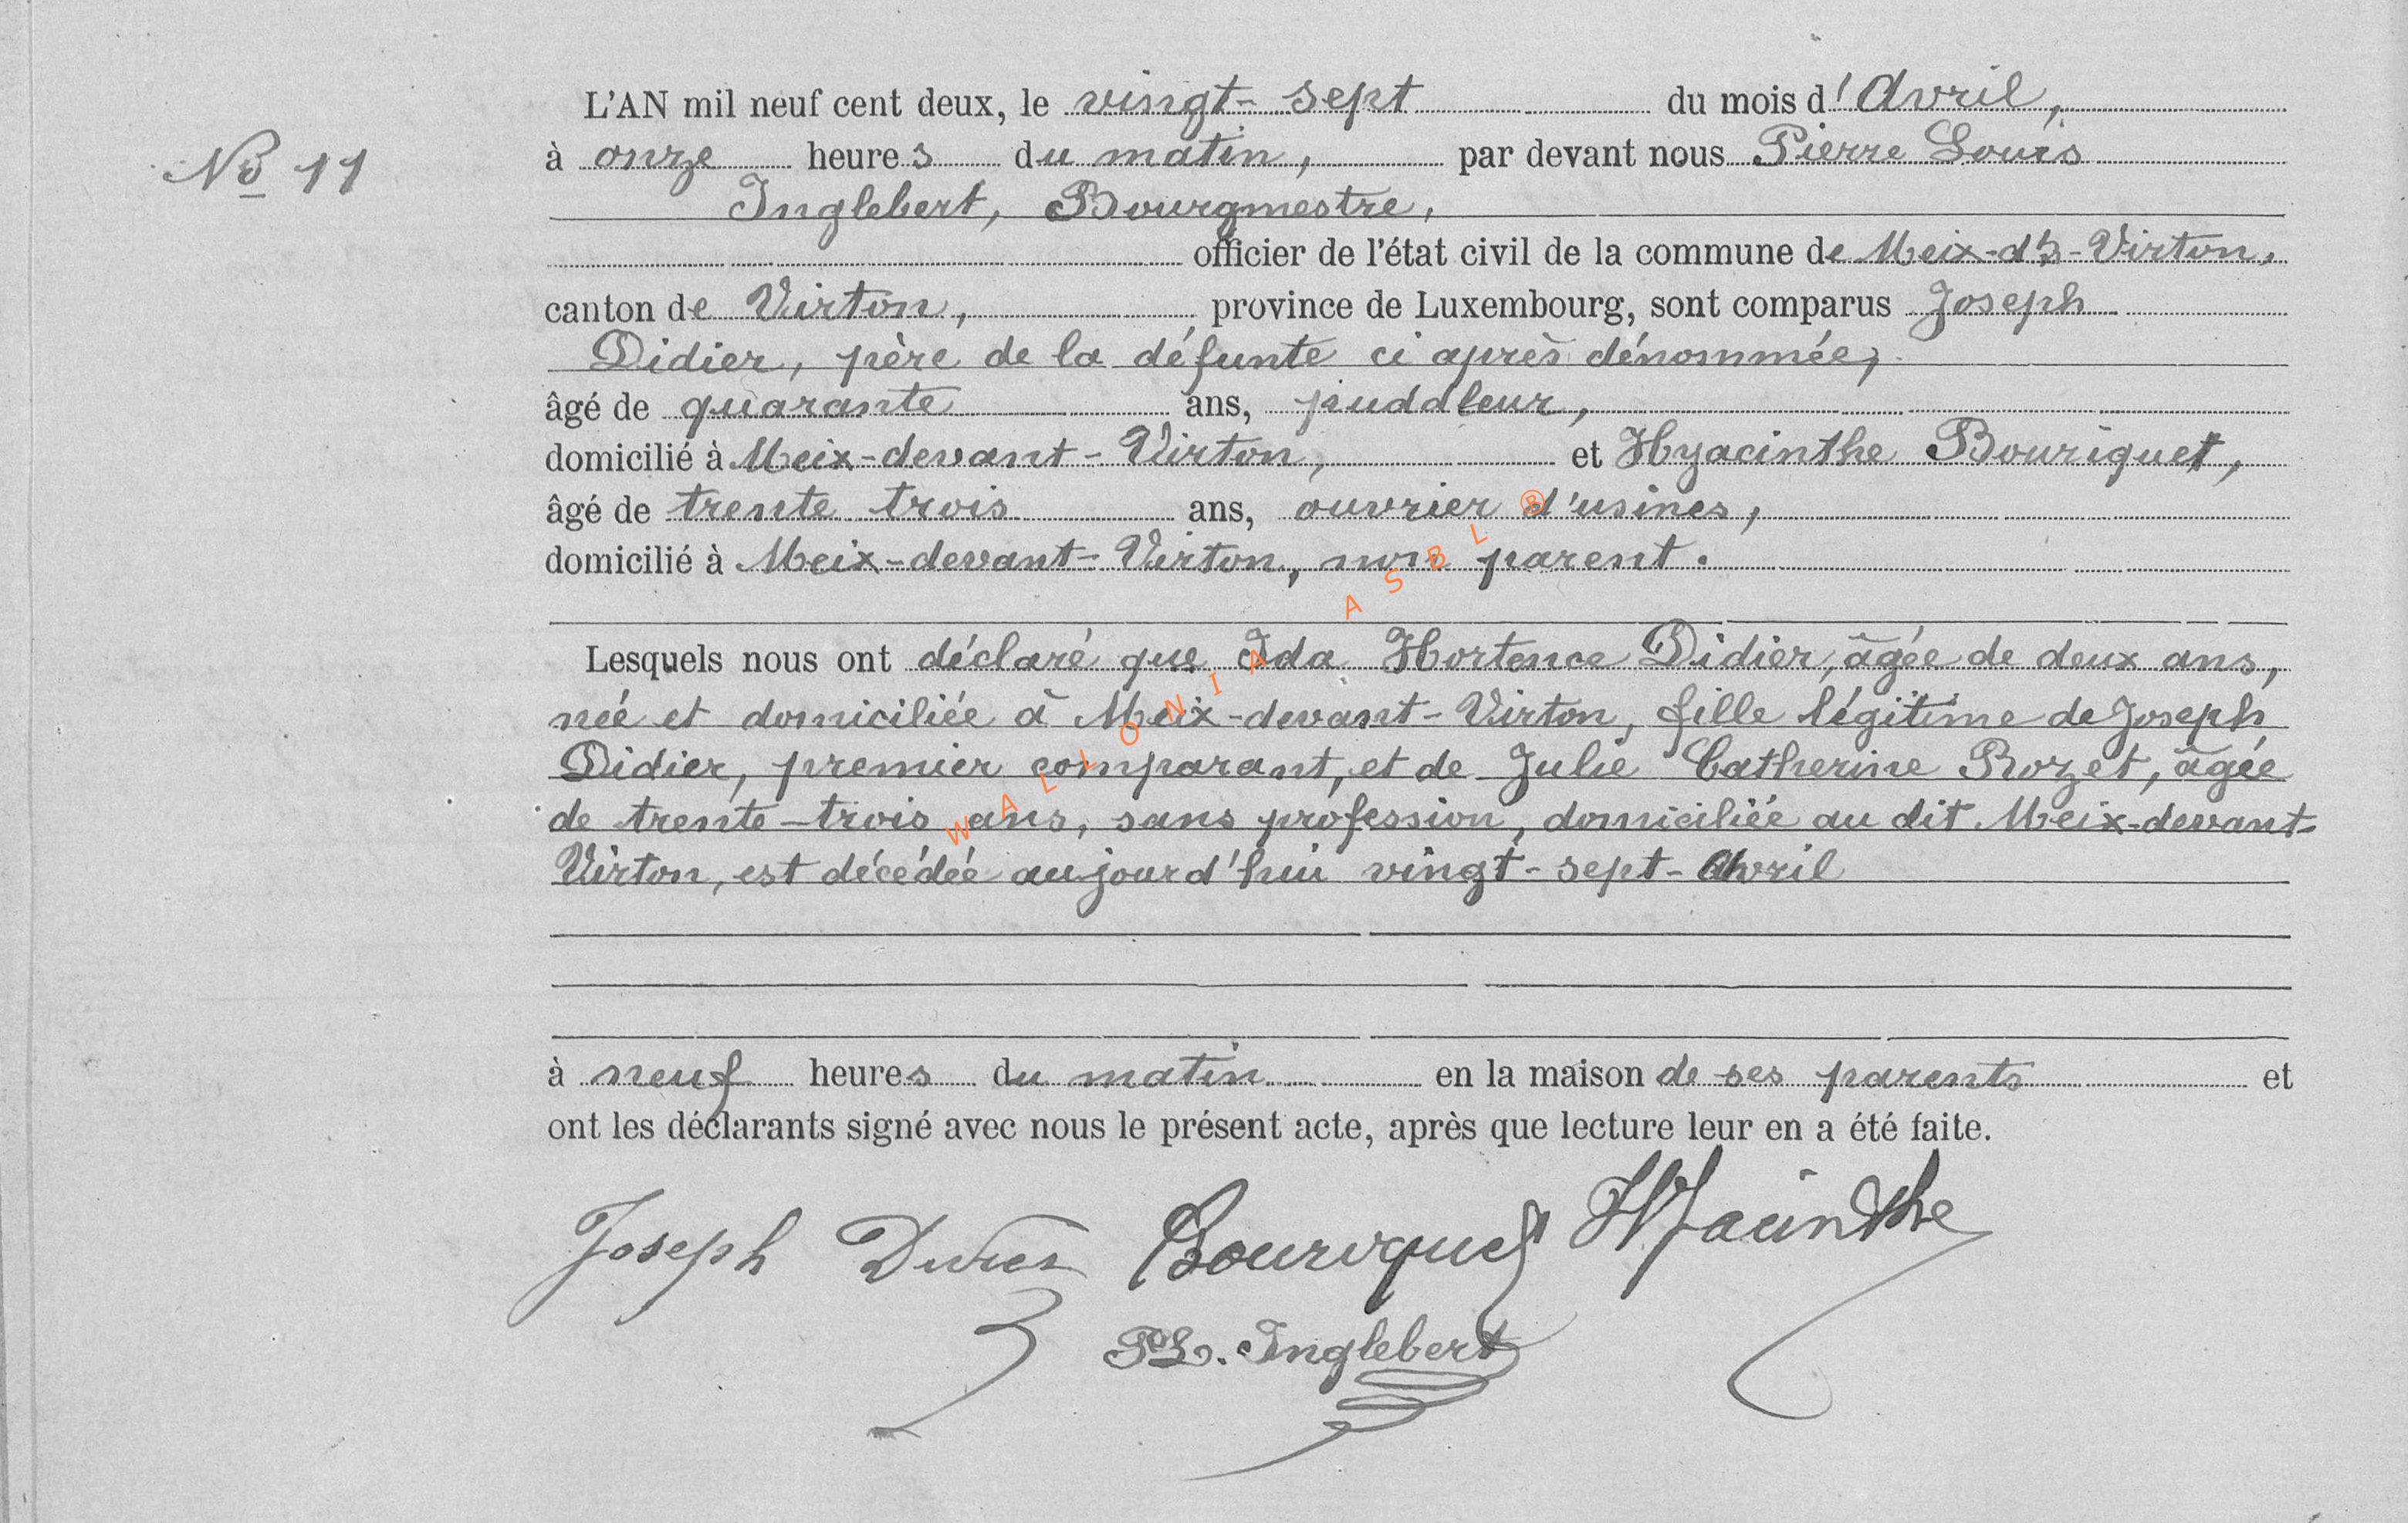 L'AN mil neuf cent deux, le vingt-sept du mois d'Avril,
No 11
à onze heures du matin, par devant nous Pierre Louis
Inglebert, Bourgmestre,
officier de l'état civil de la commune de Meix-dt-Virton,
canton de Virton, province de Luxembourg, sont comparus Joseph
Didier, père de la défunte ci après dénommée,
âgé de quarante ans, puddleur,
domicilié à Meix-devant-Virton, et Hyacinthe Bouriquet,
âgé de trente trois ans, ouvrier d'usines,
domicilié à Meix-devant-Virton, non parent.
Lesquels nous ont déclaré que Ida Hortence Didier, âgée de deux ans,
née et domiciliée à Meix-devant-Virton, fille légitime de Joseph
Didier, premier comparant, et de Julie Catherine Rozet, âgée
de trente-trois ans, sans profession, domiciliée au dit Meix-devant-
Virton, est décédée aujourd'hui vingt-sept-Avril
WALLONIA ASBL ®
à neuf heures du matin en la maison de ses parents et
ont les déclarants signé avec nous le présent acte, après que lecture leur en a été faite.
Joseph Didier Bouriquet Hyacinthe
PL. Inglebert